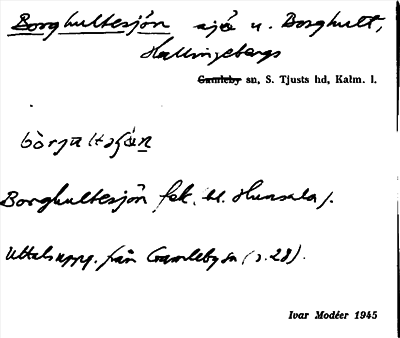 Borghultesjön sjö u. Borghult,
Hallingebergs
Gamleby sn, S. Tjusts hd, Kalm. l.
Borghultesjön fsk. bl. Hunsala).
Uttalsuppg. från Gamleby sn (s. 28).
Ivar Modéer 1945